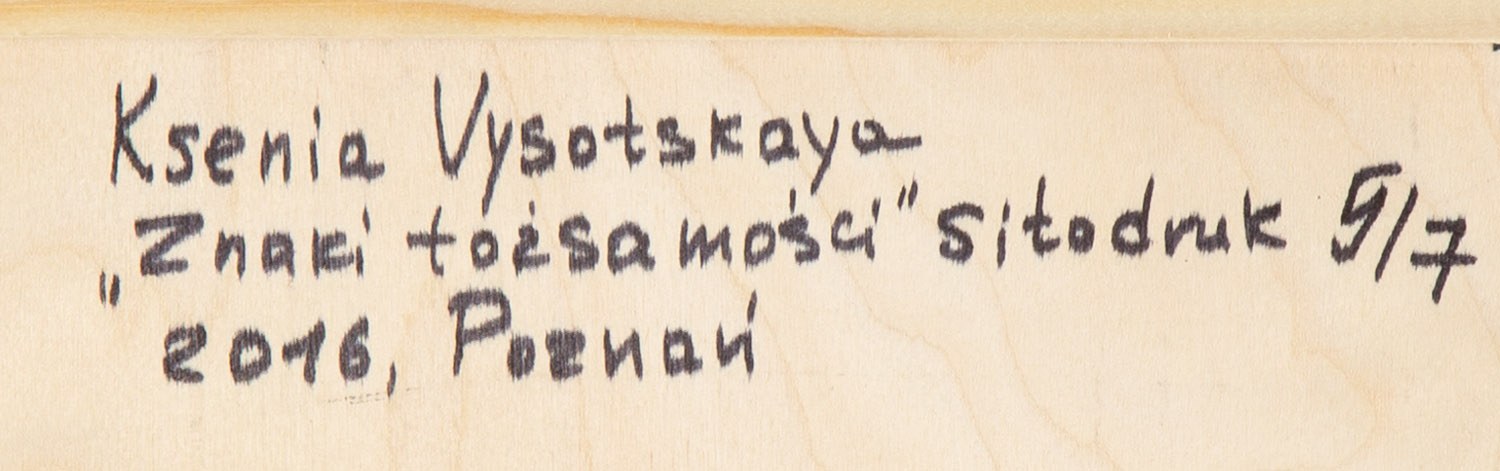 Ksenia Vysotskaya
„Znaki tożsamości" sitodruk 5/7
2016, Poznań